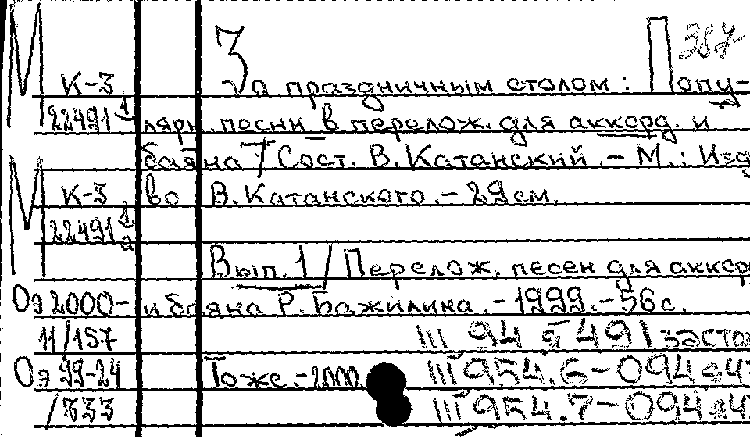 М К-3 За праздничным столом : Попу-
22491 1 лярн. песни в перелож. для аккорд. и
баяна / Сост. В. Катанский. - М.: Изд
М К-3 во В. Катанского. - 29 см.
22491 1 2
Вып. 1 / Перелож. песен для аккор
Оэ 2000- и баяна Р. Бажилина. - 1999. - 56 с.
11/157 Ш 94 491 засто
Оэ 99-24 То же. - 2000 Ш 954.6-094
/333 Ш 954.7-094